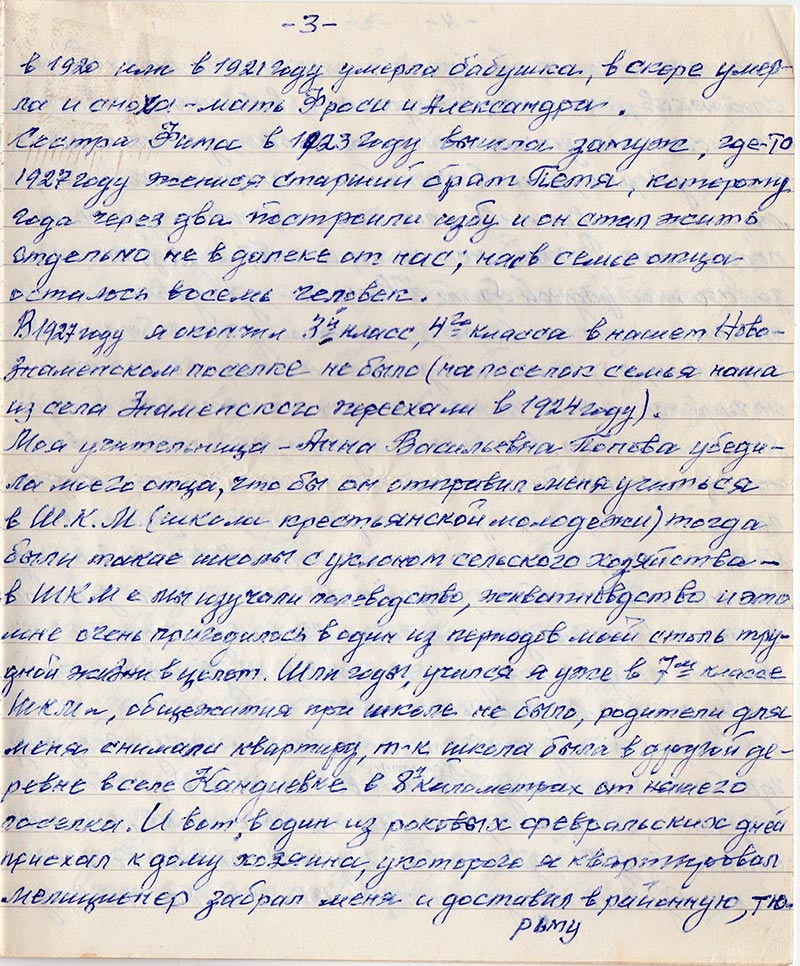 -3-
в 1920 или в 1921 году умерла бабушка, в скоре умер-
ла и сноха - мать Фроси и Александры.
Сестра Фима в 1923 году вышла замуж, где-то
1927 году женися старший брат Петя, которому
года через два построили избу и он стал жить
отдельно не в далеке от нас; нас в семье отца
осталось восемь человек.
В 1927 году я окончил 3й класс, 4го класса в нашем Ново-
знаменском поселке не было (на поселок семья наша
из села Знаменского переехали в 1924 году).
Моя учительница - Анна Васильевна Попова убеди-
ла моего отца, что бы он отправил меня учиться
в Ш.К.М. (школа крестьянской молодежи) тогда
были такие школы с уклоном сельского хозяйства -
в ШКМе мы изучали полеводство, животневдство и это
мне очень пригодилось в один из периодов моей столь тру-
дной жизни в целом. Шли годы, учился я уже в 7м классе
ШКМа, общежития при школе не было, родители для
меня снимали квартиру, т-к школа была в другой де-
ревне в селе Кандиевке в 8и километрах от нашего
поселка. И вот, в один из роковых февральских дней
приехал к дому хозяина, у которого я квартировал
мелиционер забрал меня и доставил в районную, тю-
рьму